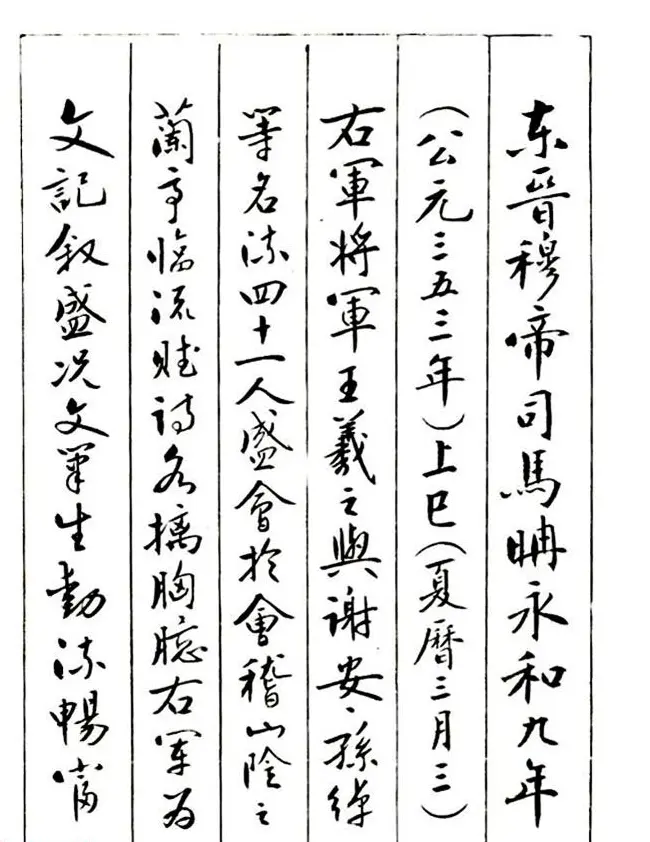 东晉穆帝司馬聃永和九年
（公元三五三年）上巳（夏曆三月三）
右軍将軍王羲之與谢安、孫绰
等名流四十一人盛會於會稽山陰之
蘭亭临流赋诗各摛胸臆右军为
文記叙盛况文筆生動流暢富